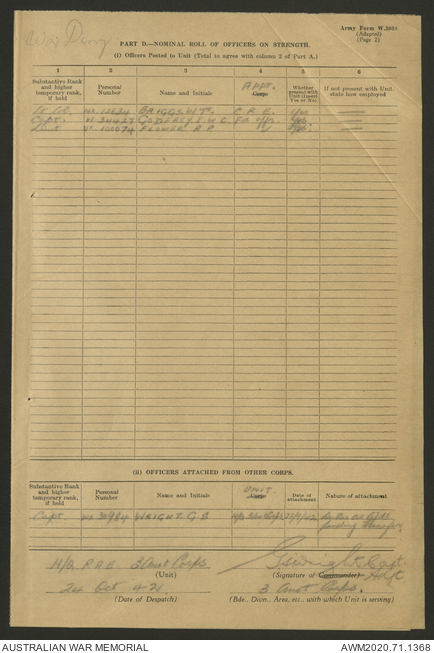 War Diary
Army Form W.3008
(Adapted)
(Page 2)
PART D.—NOMINAL ROLL OF OFFICERS ON STRENGTH.
(i) Officers Posted to Unit (Total to agree with column 2 of Part A.)
1 2 3 4 5 6
Substantive Rank and higher temporary rank, if held
Personal Number
Name and Initials
Appt.
Corps
Whether present with Unit (Insert Yes or No)
If not present with Unit, state how employed
Lt Col. BRIGGS C. R. E. Yes —
Capt. GODFREY Yes —
Lieut Yes —
(ii) OFFICERS ATTACHED FROM OTHER CORPS.
Substantive Rank and higher temporary rank, if held
Personal Number
Name and Initials
Unit
Corps
Date of attachment
Nature of attachment
Capt. WRIGHT G S pending transfer
H/Q. R.A.E. 3 Aust Corps. Capt
(Unit) (Signature of Commander) Adjt
24 Oct 42 3 Aust Corps.
(Date of Despatch) (Bde., Divn., Area, etc., with which Unit is serving)
AUSTRALIAN WAR MEMORIAL AWM2020.71.1368